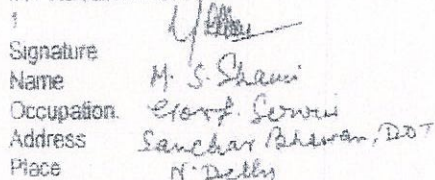 1
Signature
Name M. S. Shami
Occupation. Govt. Service
Address Sanchar Bhawan, DOT
Place N. Delhi